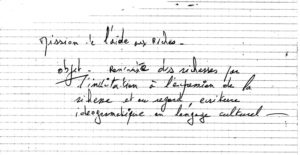 Mission de l'aide aux Riches.
objet. des richesses par
l'incitation à l'expansion de la
richesse et au regard, écriture
ideogrammatique en langage culturel